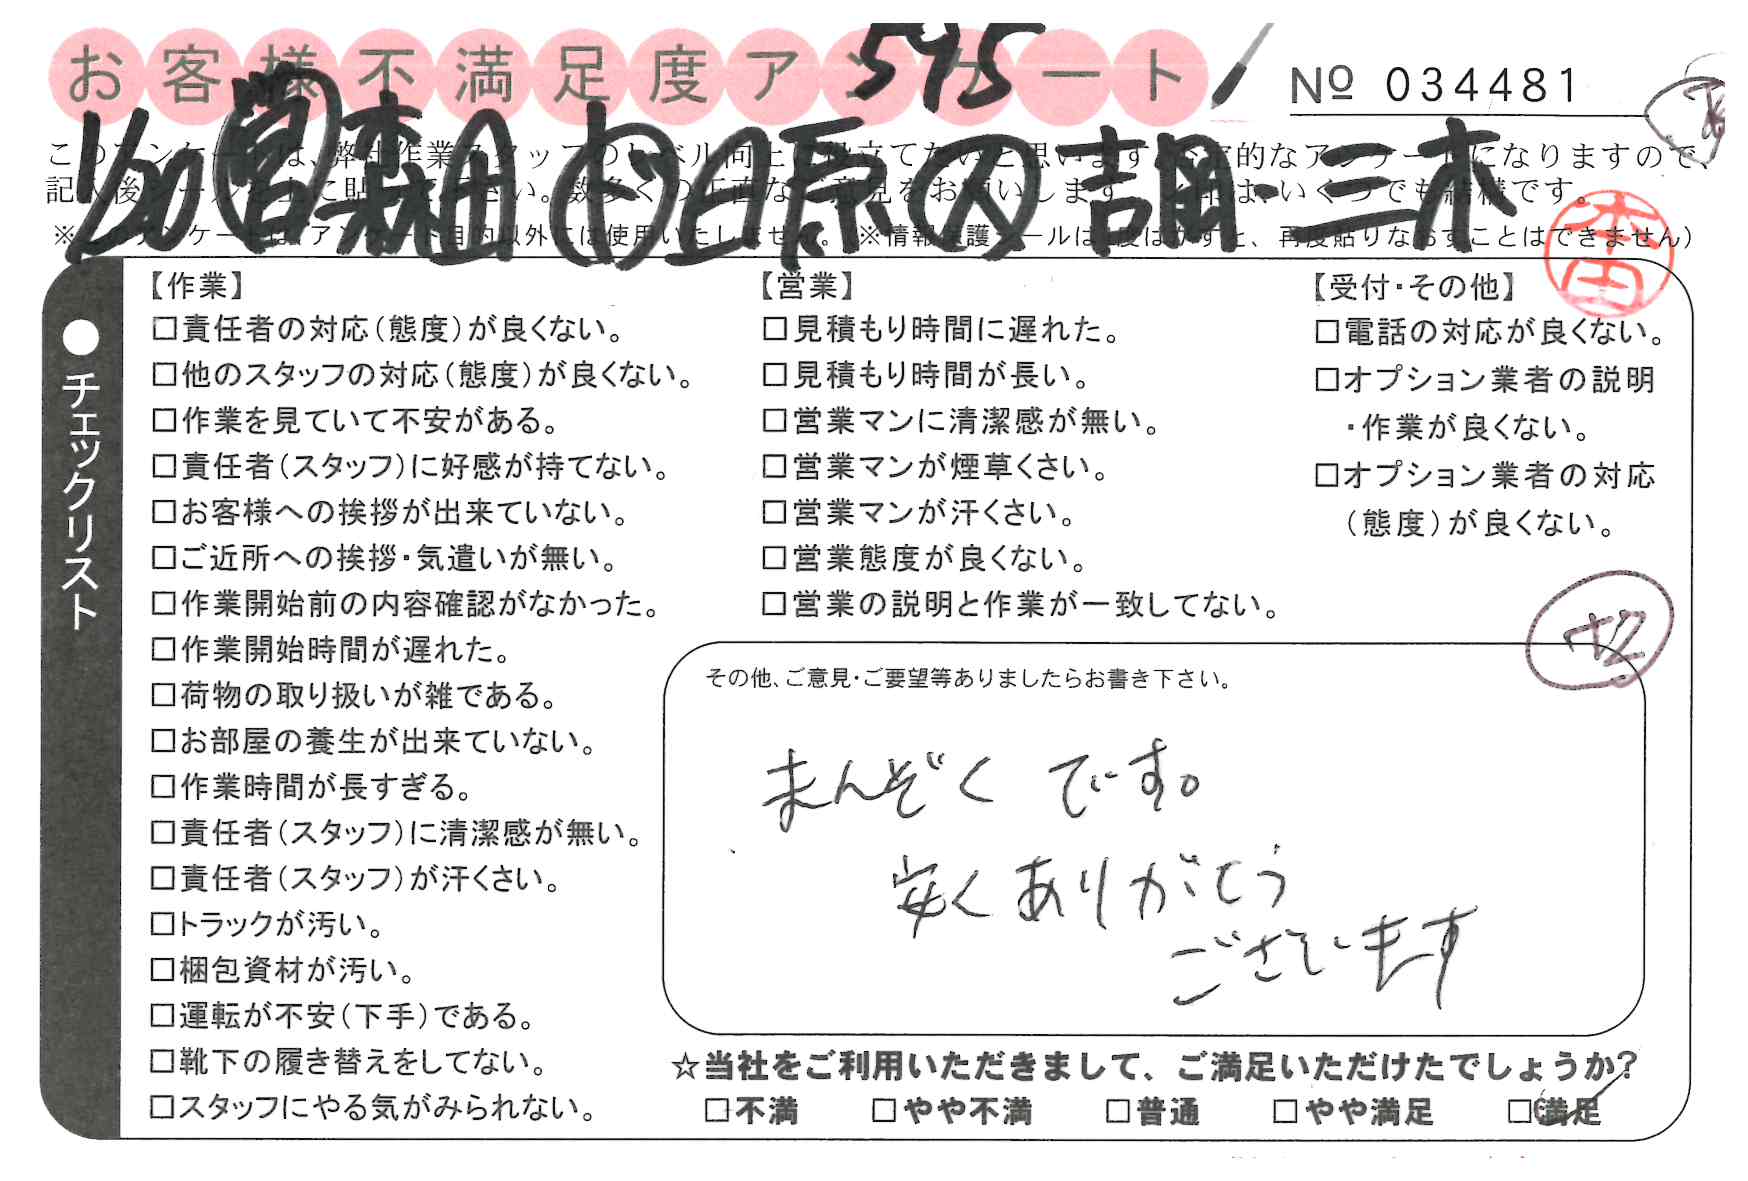 お客様不満足度アンケート
595
Nº 034481
1/30 営 森田 作 日原 人 吉岡・三木
このアンケートは、弊社作業スタッフのレベル向上に役立てたいと思います。否定的なアンケートになりますので、
記入後シールを上に貼って下さい。数多くの正直なご意見をお願いします。レ印は、いくつでも結構です。
※このアンケートは、アンケート目的以外には使用いたしません。(※情報保護シールは1度はがすと、再度貼りなおすことはできません)
●チェックリスト
【作業】
□責任者の対応(態度)が良くない。
□他のスタッフの対応(態度)が良くない。
□作業を見ていて不安がある。
□責任者(スタッフ)に好感が持てない。
□お客様への挨拶が出来ていない。
□ご近所への挨拶・気遣いが無い。
□作業開始前の内容確認がなかった。
□作業開始時間が遅れた。
□荷物の取り扱いが雑である。
□お部屋の養生が出来ていない。
□作業時間が長すぎる。
□責任者(スタッフ)に清潔感が無い。
□責任者(スタッフ)が汗くさい。
□トラックが汚い。
□梱包資材が汚い。
□運転が不安(下手)である。
□靴下の履き替えをしてない。
□スタッフにやる気がみられない。
【営業】
□見積もり時間に遅れた。
□見積もり時間が長い。
□営業マンに清潔感が無い。
□営業マンが煙草くさい。
□営業マンが汗くさい。
□営業態度が良くない。
□営業の説明と作業が一致してない。
【受付・その他】
□電話の対応が良くない。
□オプション業者の説明
・作業が良くない。
□オプション業者の対応
(態度)が良くない。
その他、ご意見・ご要望等ありましたらお書き下さい。
まんぞくです。
安くありがとう
ございます
☆当社をご利用いただきまして、ご満足いただけたでしょうか?
□不満 □やや不満 □普通 □やや満足 □満足